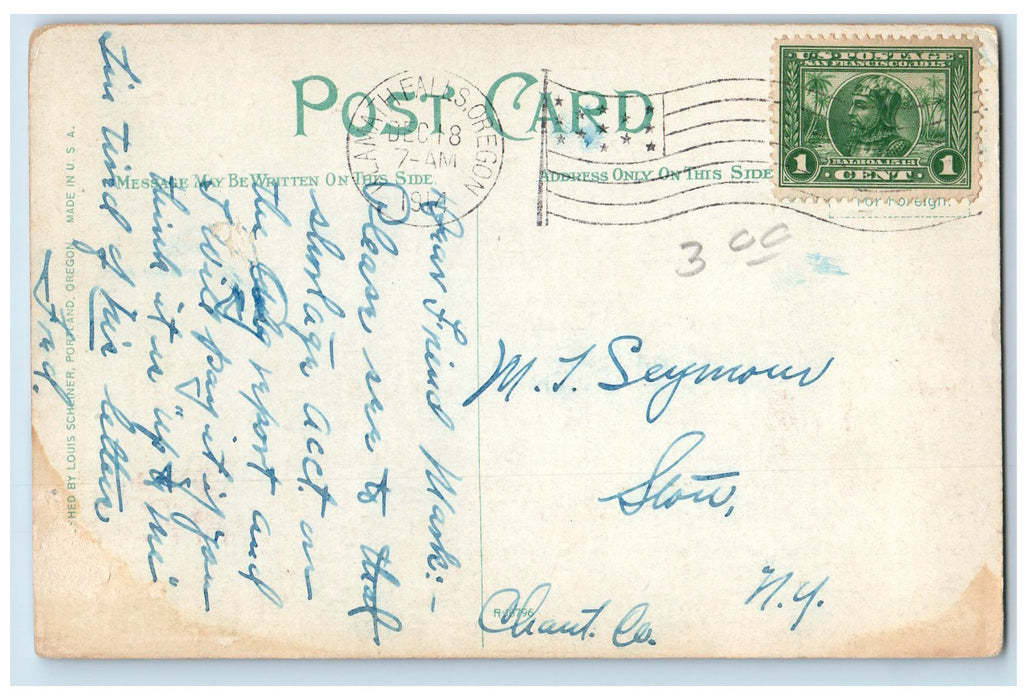 POST CARD
KLAMATH FALLS, OREGON
DEC 18
7-AM
1914
U.S. POSTAGE
SAN FRANCISCO, 1915
BALBOA 1513
1 CENT 1
MESSAGE MAY BE WRITTEN ON THIS SIDE
ADDRESS ONLY ON THIS SIDE
For Foreign.
3 00
Dear Friend Mark:-
Please see to that
shortage acct. on
the report and
I will pay it if you
think it is "up to me"
Tire tird of his letters
M. T. Seymour
Stow,
N.Y.
Chaut. Co.
R-18796
HED BY LOUIS SCHEINER, PORTLAND, OREGON. MADE IN U.S.A.